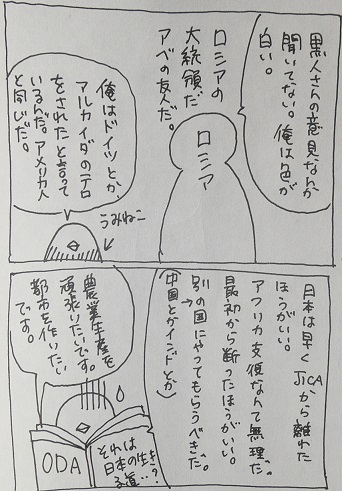 黒人さんの意見なんか
聞いてない。俺は色が
白い。
ロシアの
大統領だ
アベの友人だ。
ロシア
俺はドイツとか、
アルカイダのテロ
をされたと言って
いるんだ。アメリカ人
と同じだ。
うみねこ
日本は早くJICAから離れた
ほうがいい。
アフリカ支援なんて無理だ。
最初から断ったほうがいい。
別の国にやってもらうべきだ。
(中国とかインドとか)
農業生産を
頑張りたいです。
都市を作りたい
です。
それは
日本の生き
る道…?
ODA